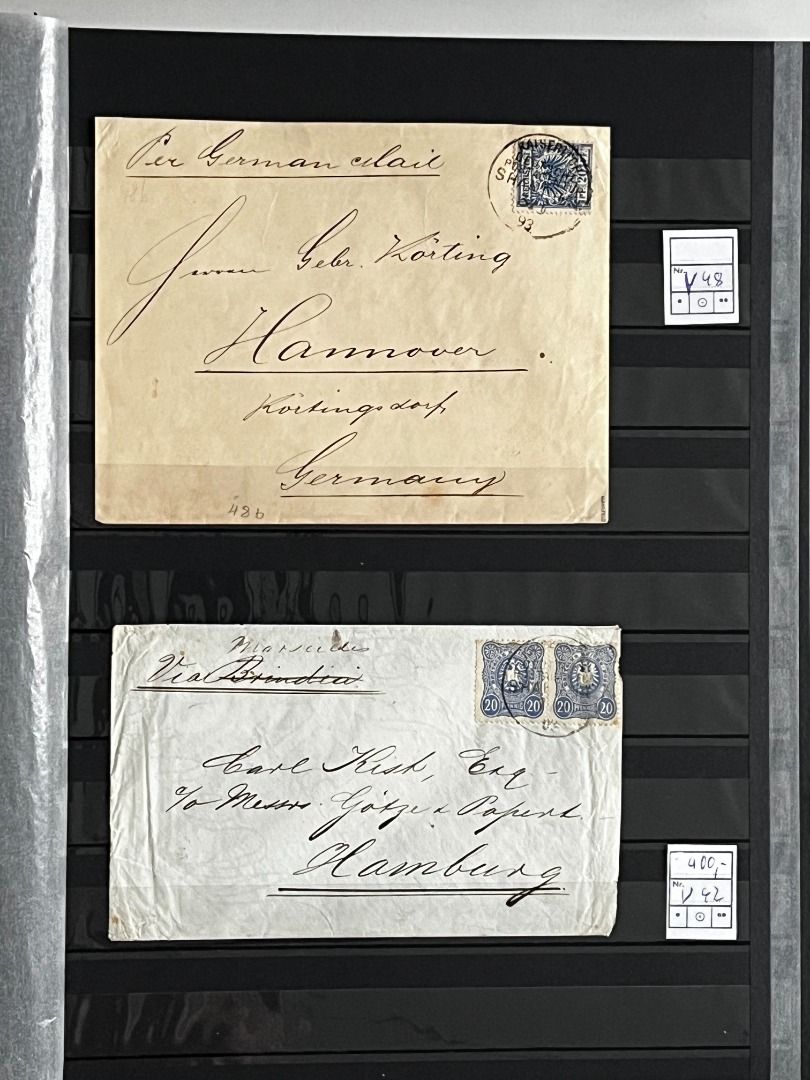 Per German Mail
48b
KAISERL. DEUTSCHE
SH
93
Herren Gebr. Körting
Hannover.
Körtingsdorf,
Germany
48b
Nr.
V 48
Marseilles
Via Brindisi
20 PFENNIG 20
20 PFENNIG 20
SHA
Carl Kish, Esq
c/o Messrs. Götze & Papert
Hamburg
400,-
Nr.
V 42